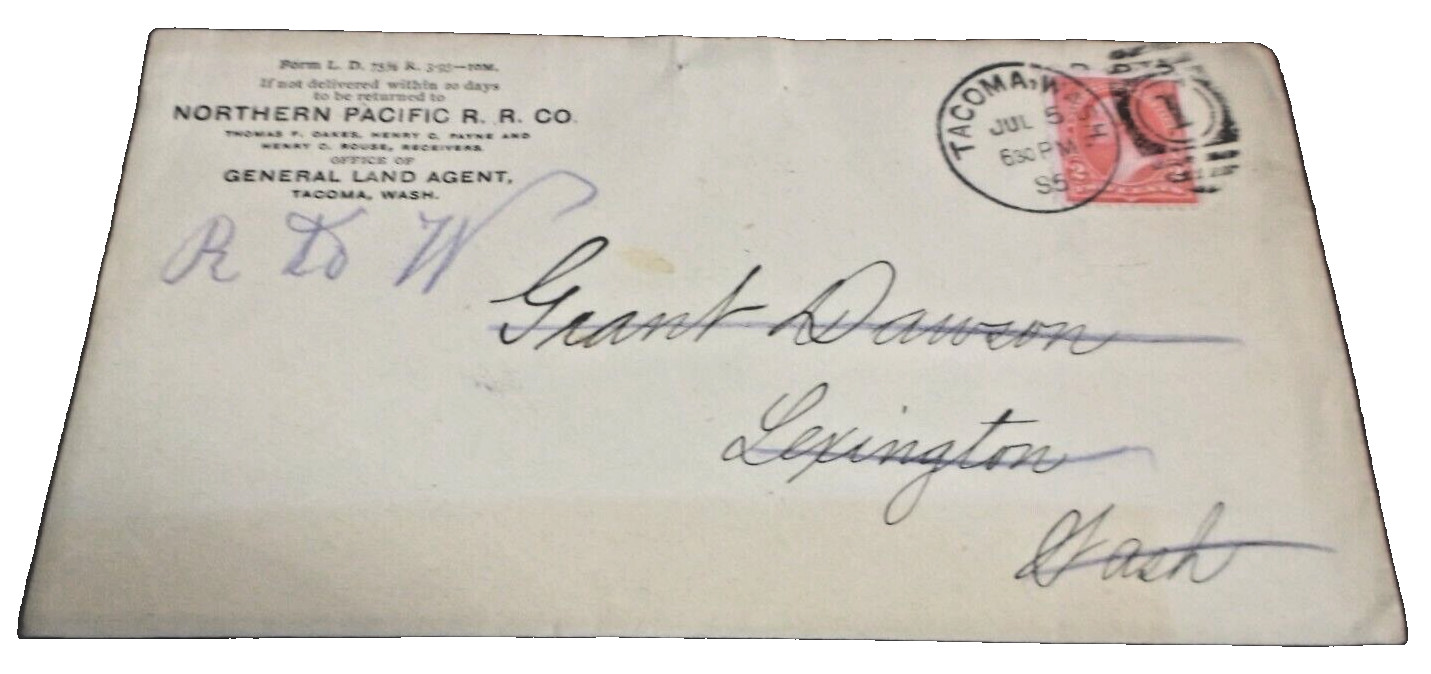 Form L. D. 75½ R. 3-95—10M.
If not delivered within 20 days
to be returned to
NORTHERN PACIFIC R. R. CO.
THOMAS F. OAKES, HENRY C. PAYNE AND
HENRY C. ROUSE, RECEIVERS.
OFFICE OF
GENERAL LAND AGENT,
TACOMA, WASH.
TACOMA, WASH
JUL 5
630 PM
95
1
2
R to W
Grant Dawson
Lexington
Wash